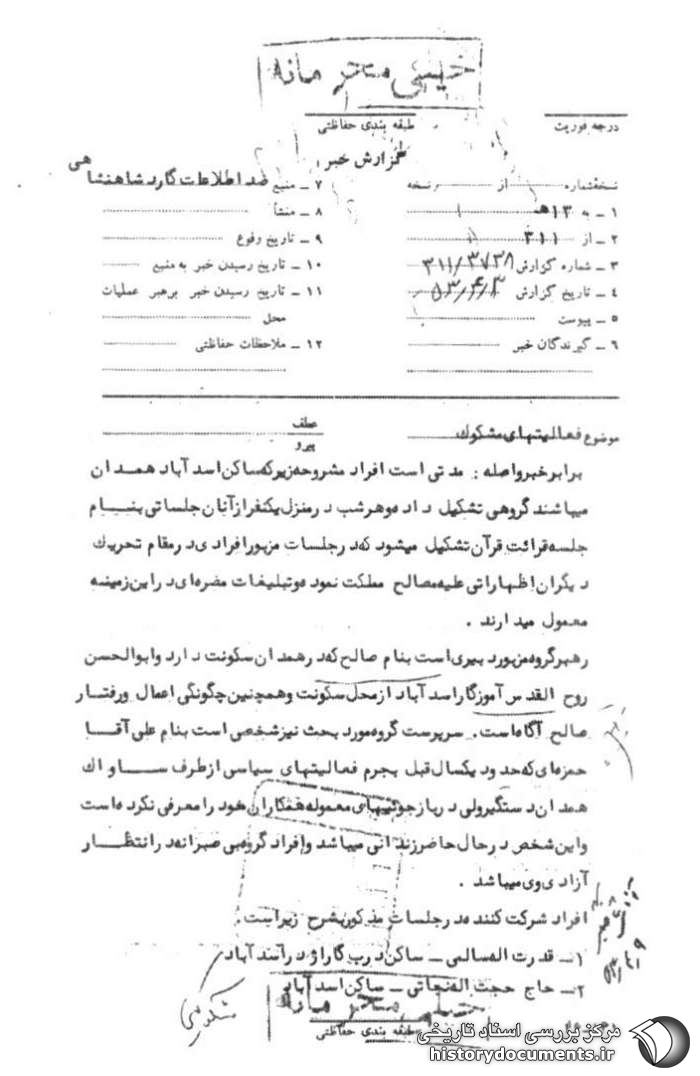 خیلی محرمانه
طبقه بندی حفاظتی
درجه فوریت
گزارش خبر
نسخهٔ شماره از نسخه
۱ – به ۱۳هـ
۲ – از ۳۱۱
۳ – شماره گزارش ۳۱۱/۳۷۳۸
۴ – تاریخ گزارش ۵۳/۴/۳
۵ – پیوست
۶ – گیرندگان خبر
۷ – منبع ضد اطلاعات گارد شاهنشاهی
۸ – منشأ
۹ – تاریخ وقوع
۱۰ – تاریخ رسیدن خبر به منبع
۱۱ – تاریخ رسیدن خبر برهبر عملیات
محل
۱۲ – ملاحظات حفاظتی
موضوع فعالیتهای مشکوك
عطف
پیرو
برابر خبر واصله : مدتی است افراد مشروحه زیر که ساکن اسد آباد همدان
میباشند گروهی تشکیل داده و هر شب در منزل یکنفر از آنان جلساتی بنام
جلسه قرائت قرآن تشکیل میشود که در جلسات مزبور افرادی در مقام تحریك
دیگران اظهاراتی علیه مصالح مملکت نموده و تبلیغات مضره ای در این زمینه
معمول میدارند .
رهبر گروه مزبور پیری است بنام صالح که در همدان سکونت دارد و ابوالحسن
روح القدس آموزگار اسد آباد از محل سکونت و همچنین چگونگی اعمال و رفتار
صالح آگاه است . سرپرست گروه مورد بحث نیز شخصی است بنام علی آقا
حمزه ای که حدود یکسال قبل بجرم فعالیتهای سیاسی از طرف ساواك
همدان دستگیر ولی در بازجوئیهای معموله همکاران خود را معرفی نکرده است
و این شخص در حال حاضر زندانی میباشد و افراد گروه بی صبرانه در انتظار
آزادی وی میباشد .
افراد شرکت کننده در جلسات مذکور بشرح زیر است .
۱– قدرت اله سالمی – ساکن درب گاراژ در اسد آباد
۲– حاج حجت اله نجاتی – ساکن اسد آباد
خیلی محرمانه
طبقه بندی حفاظتی
مرکز بررسی اسناد تاریخی
historydocuments.ir